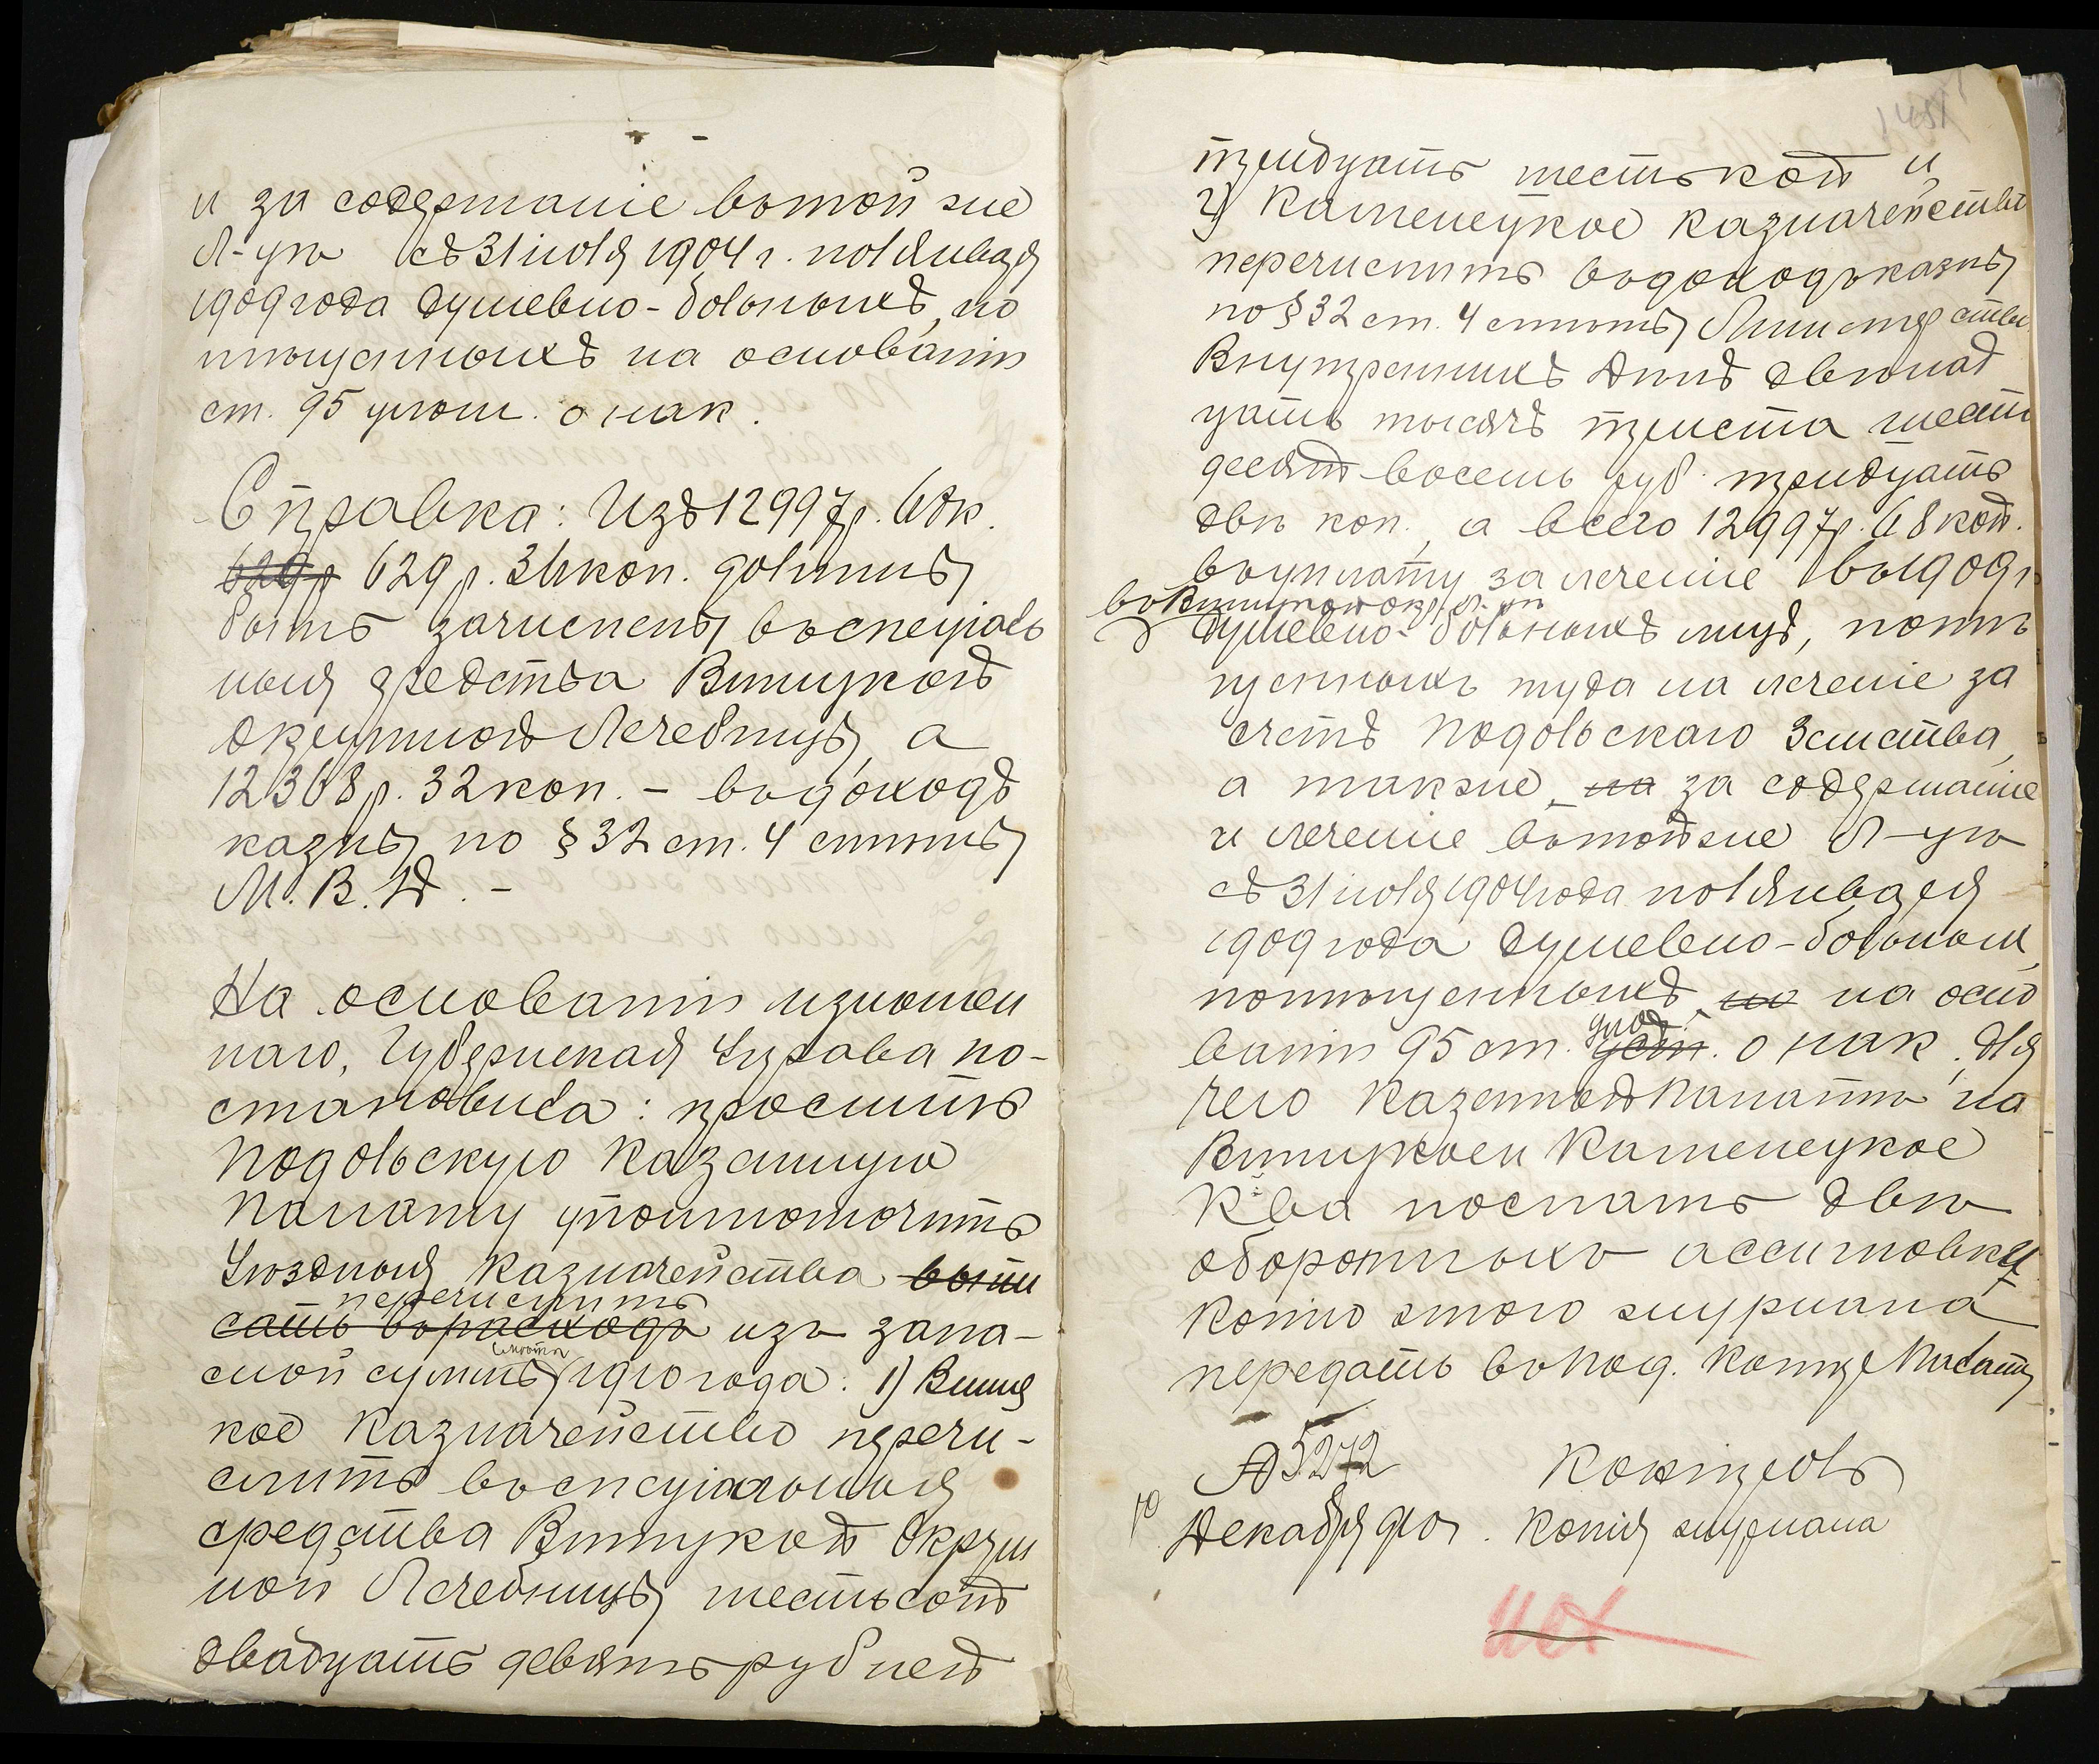 и за содержаніе въ той же
Л-цѣ съ 31 іюля 1904 г. по 1 Января
1909 года душевно-больныхъ, по
мѣщенныхъ на основаніи
ст. 95 улож. о нак.
Справка: Изъ 12997 р. 68 к.
629 р 629 р. 36 коп. должны
быть зачислены въ спеціаль
ныя средства Винницкой
Окружной Лечебницы, а
12368 р. 32 коп. – въ доходъ
казны по § 32 ст. 4 смѣты
М. В. Д. –
На основаніи изложен
наго, Губернская Управа по-
становила: просить
Подольскую Казенную
Палату уполномочить
Уѣздныя Казначейства выпи
перечислить
сать въ расходъ изъ запа-
смѣты
сной суммы 1910 года: 1) Винниц
кое Казначейство перечи-
слить въ спеціальныя
средства Винницкой Окруж
ной Лечебницы шестьсотъ
двадцать девять рублей
тридцать шесть коп и
2) Каменецкое Казначейство
перечислить въ доходъ казны
по § 32 ст. 4 смѣты Министерства
Внутреннихъ Дѣлъ двѣнад
цать тысячъ триста шесть
десятъ восемь руб. тридцать
двѣ коп., а всего 12997 р. 68 коп.
въ уплату за леченіе въ 1909 г
въ Винницкой окр. Л-цѣ
душевно-больныхъ лицъ, помѣ
щенныхъ туда на леченіе за
счетъ Подольскаго Земства,
а также, на за содержаніе
и леченіе въ той же Л-цѣ
съ 31 іюля 1904 года по 1 Января
1909 года душевно-больных,
помѣщенныхъ, но на осно
улож.
ваніи 95 ст. уст. о нак., для
чего Казенной Палатѣ на
Винницкое и Каменецкое
К-ва послать двѣ
оборотныхъ ассигновки
копію этого журнала
передать въ Под. Контр. Палату
№ 5272 Контроль
10 Декабря 910 г. Копія журнала
исх